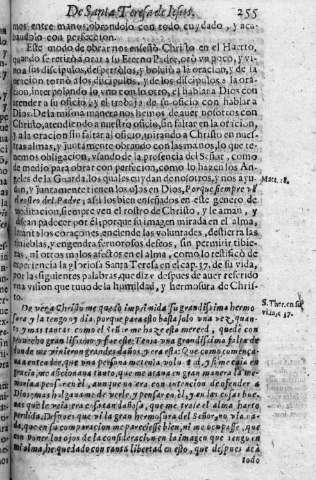 De Santa Teresa de Iesus. 255
mos entre manos, obrandolo con todo cuydado, y aca-
vandolo con perfeccion.
Este modo de obrar nos enseñò Christo en el Huerto,
quando se retirò a orar a su Eterno Padre, orò vn poco, y vi-
no a sus discipulos, desperTòlos, y bolviò a la oracion, y de la
oracion tornò a los discipulos, y de los discipulos a la ora-
cion, interpolando lo vno con lo otro, el hablar a Dios con
atender a su oficio, y el trabajo de su oficio con hablar a
Dios. De la misma manera nos hemos de auer nosotros con
Christo, atendiendo a nuestro oficio, sin faltar en la oracion,
y a la oracion sin faltar al oficio, mirando a Christo en nues-
tras almas, y juntamente obrando con las manos, lo que te-
nemos obligacion, vsando de la presencia del Señor, como
de medio para obrar con perfeccion, como lo hazen los An-
geles de la Guarda los quales cuydan de nosotros, y nos ayu-
dan, y juntamente tienen los ojos en Dios, Porque siempre vè
Matt. 18.
del Padre, assi los bien enseñados en este genero de
meditacion, siempre ven el rostro de Christo, y le aman, y
dessean padecer por èl; porque su imagen mirada en el alma,
los coraçones enciende las voluntades, destierra las
tinieblas, y engendra fervorosos deseos, sin permitir tibie-
zas, ni otros malos afectos en el alma, como lo testificò de
experiencia la gloriosa Santa Teresa en el cap. 37. de su vida,
por las siguientes palabras, que dize despues de auer referido
vna vision que tuuo de la humildad, y hermosura de Chris-
to.
S. Ther. en su
vida, c. 37.
De ver a Christo me quedò imprimida su grandissima hermo-
sura y la tengo oy dia, porque para esto bastaua sola vna vez, quan-
to y mas tantas como el Señor me haze esta merced, quedè con
prouecho grandissimo, y fue este: Tenia vna grandissima falta de
donde me vinieron grandes daños, y era esta: Que como comen-
ua a entender, que vna persona me tenia voluntad, y si me caia en
gracia, me aficionaua tanto, que me ataua en gran manera la me-
moria a pensar en èl, aunque no era con intencion de ofender a
Dios; mas holgauame de verle, y pensar en èl, y en las cosas bue-
nas que le veia, era cosa tan dañosa, que me traîe el alma harto
perdida. Despues que vi la gran hermosura del Señor, no via na-
die, que en su comparacion me pareciesse bien, ni me ocupasse, que
con poner los ojos de la consideracion en la imagen que tengo en
mi alma, he quedado con tanta libertad en esto, que despues acà
todo